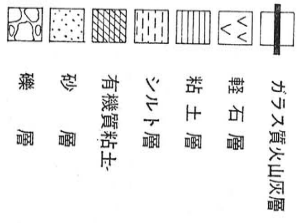 ガラス質火山灰層
軽石層
粘土層
シルト層
有機質粘土
砂層
礫層